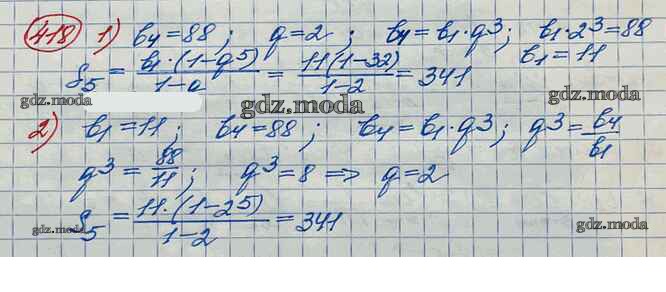 418 1) b₄=88; q=2; b₄=b₁·q³; b₁·2³=88
S₅ = b₁·(1-q⁵)/1-q = 11(1-32)/1-2 = 341 b₁=11
gdz.moda gdz.moda gdz.moda
2) b₁=11; b₄=88; b₄=b₁·q³; q³=b₄/b₁
q³=88/11; q³=8 => q=2
S₅ = 11·(1-2⁵)/1-2 = 341
gdz.moda gdz.moda